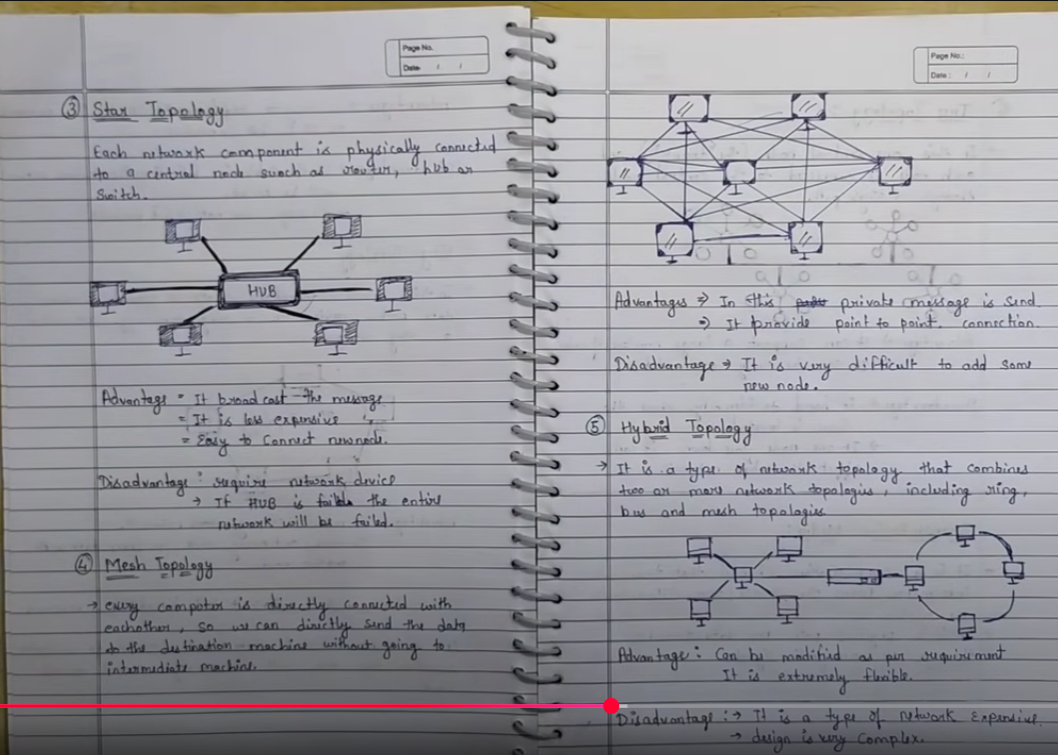 Page No.
Date / /
③ Star Topology
Each network component is physically connected
to a central node sunch as router, hub or
switch.
HUB
Advantage = It broad cast the message
= It is less expensive
= Easy to connect new node.
Disadvantage : require network device
→ If HUB is failed the entire
network will be failed.
④ Mesh Topology
→ every computer is directly connected with
eachother, so we can directly send the data
to the destination machine without going to
intermediate machine.
Page No.:
Date : / /
Advantages ⇒ In this private message is send
⇒ It provide point to point connection.
Disadvantage → It is very difficult to add some
new node.
⑤ Hybrid Topology
→ It is a type of network topology that combines
two or more network topologies, including ring,
bus and mesh topologies
Advantage : Can be modified as per requirement
It is extremely flexible.
Disadvantage : → It is a type of network Expensive.
→ design is very complex.